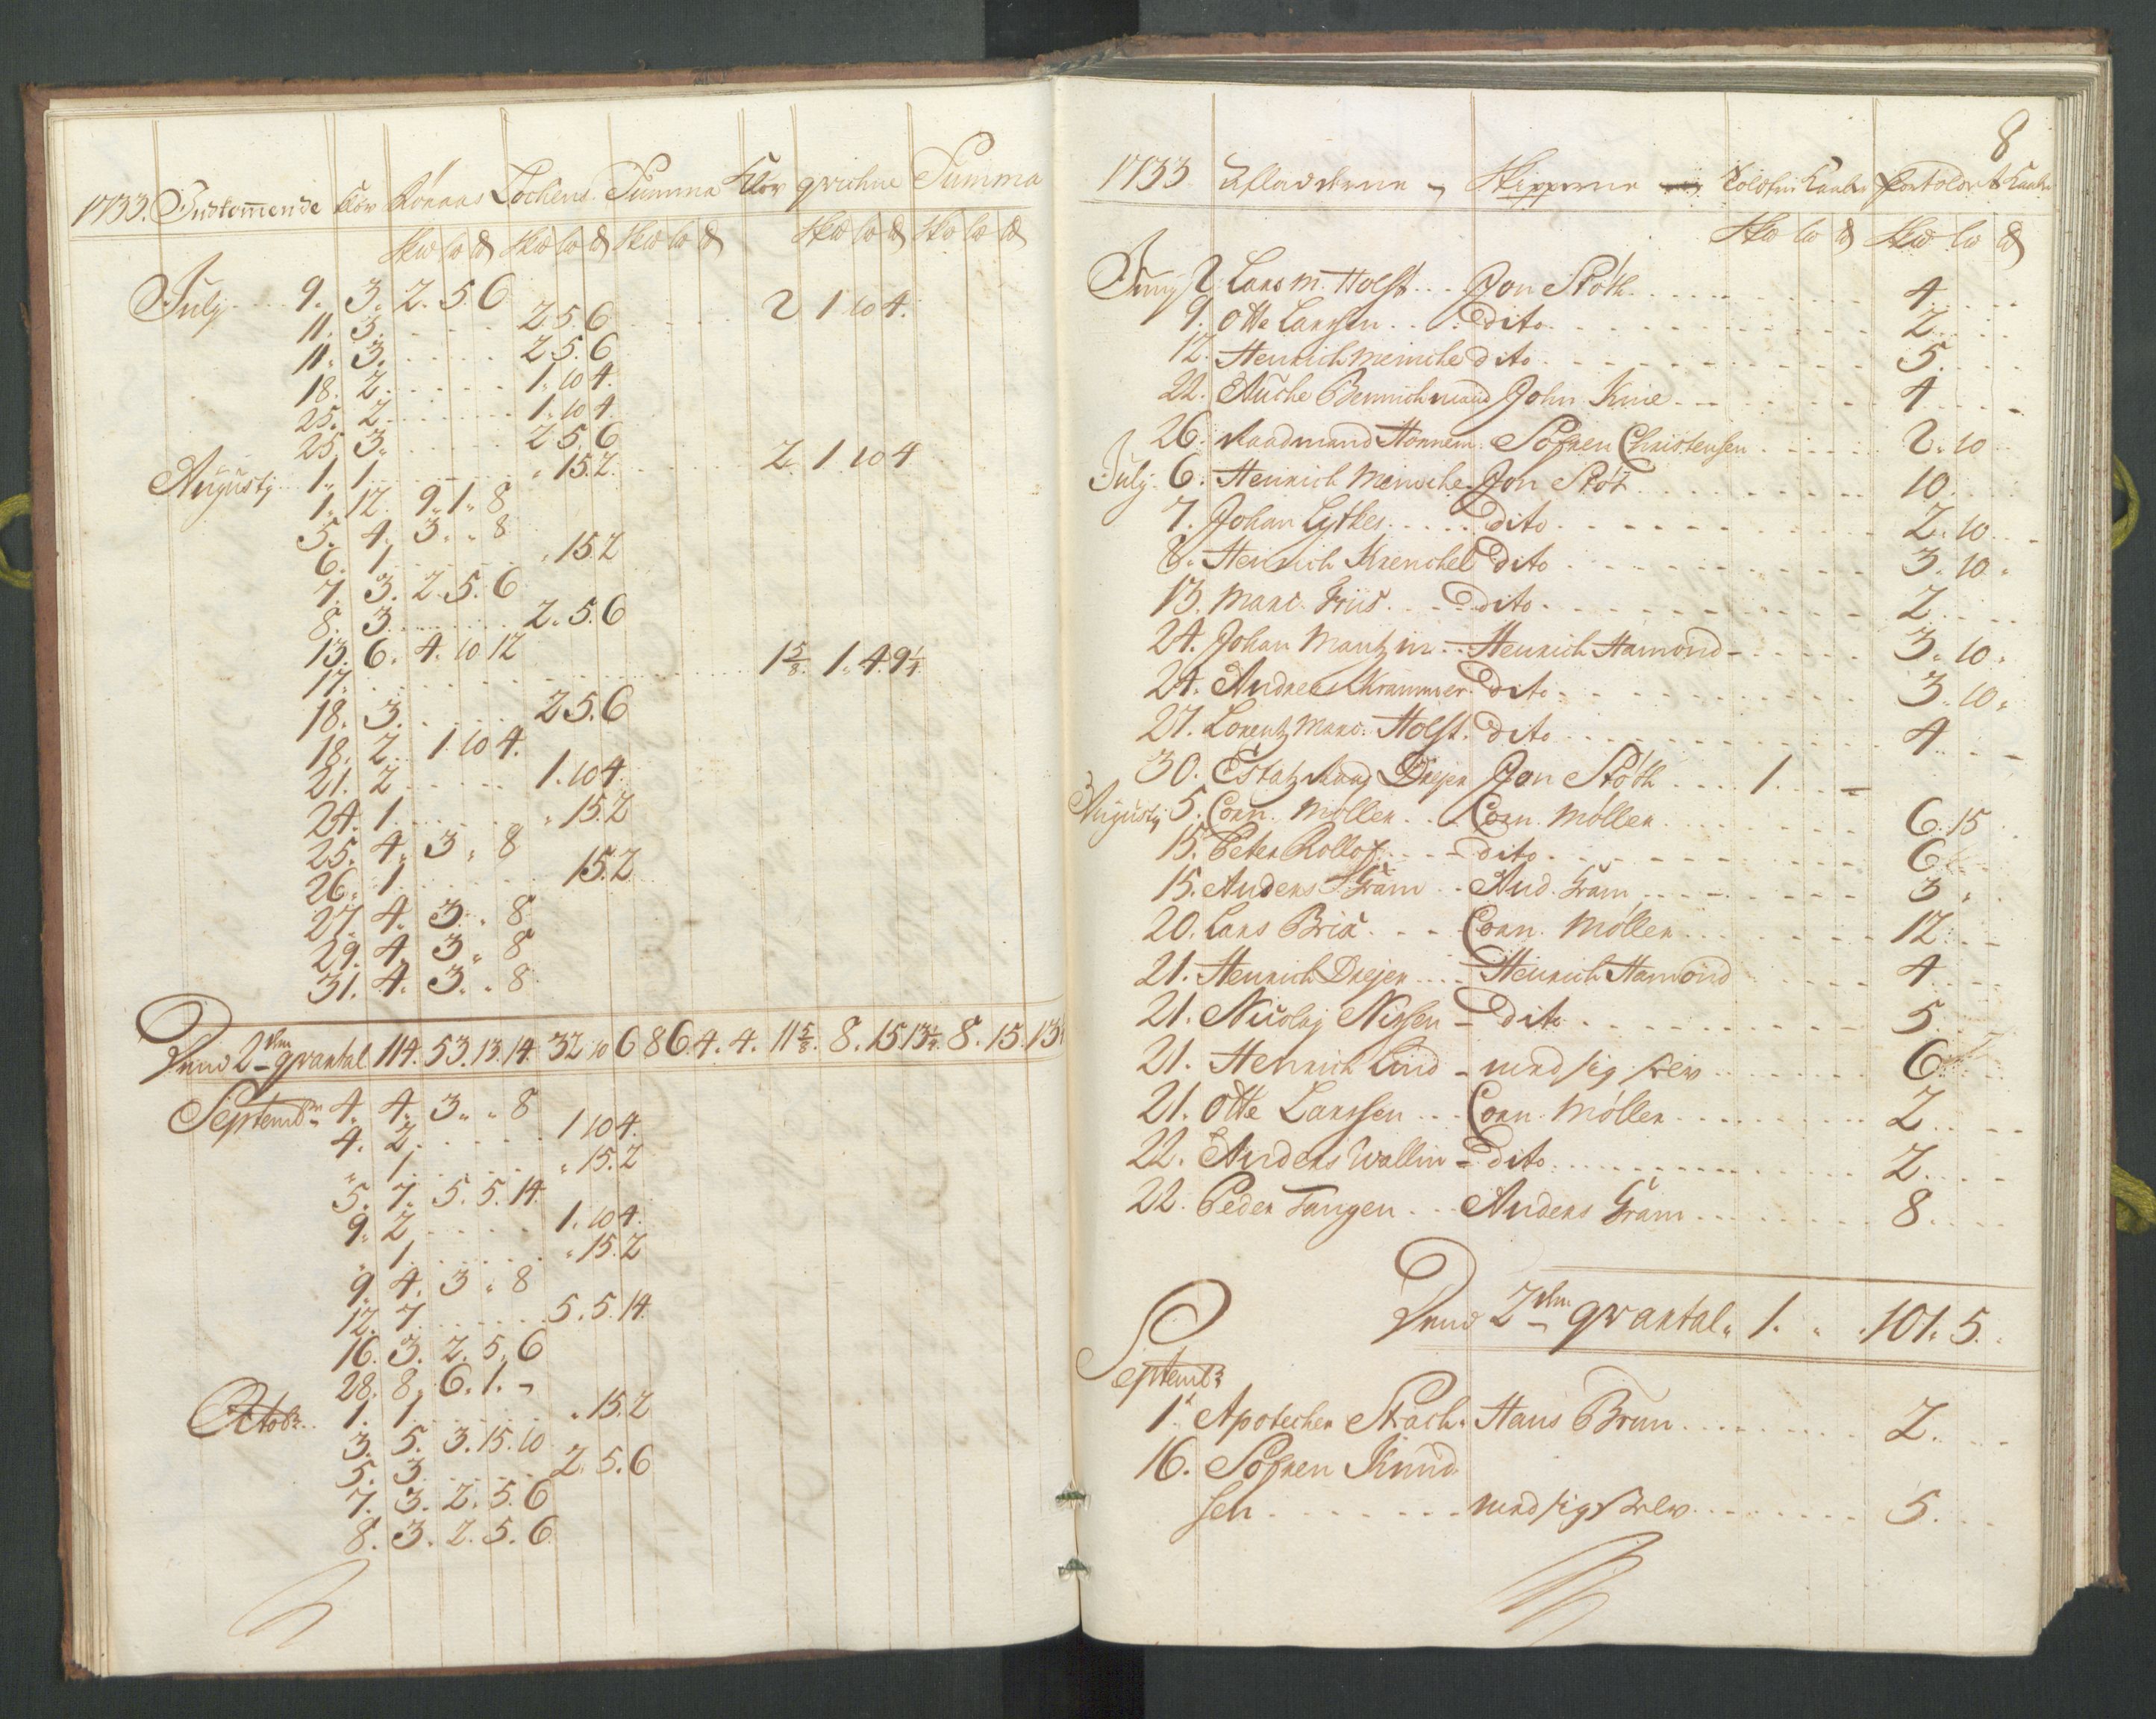 1733. Indkom̅ende Kløv Rónaas Lockens Summa Kløv Summa
July 9. 3. 2. 5. 6
11. 3. 2. 5. 6 2 1 10 4.
11. 3. 2. 5. 6
18. 2. 1. 10 4.
25. 2. 1. 10 4.
25. 3. 2. 5. 6
Augustj 1. 1. „ 15. 2. 2 1 10 4
1. 12. 9. 1. 8
5. 4. 3. „ 8
6. 1. „ 15. 2
7. 3. 2. 5. 6
8. 3. 2. 5. 6
13. 6. 4. 10 12
17. 1⅝. 1. 4. 9¼.
18. 3. 2 5. 6
18. 2. 1. 10 4.
21. 2 1. 10 4.
24. 1. „ 15. 2
25. 4. 3 „ 8
26. 1. 15. 2
27. 4. 3. „ 8
29. 4. 3 „ 8
31. 4. 3. „ 8.
2 qvartal 114. 53. 13. 14. 32 10 6 86. 4. 4. 11⅝. 8. 15. 13¼. 8. 15. 13¼
Septemb 4. 4. 3. „ 8
4. 2. 1 10 4.
„ 1. „ 15. 2
5. 7. 5. 5. 14.
9. 2 1. 10 4.
„ 1. „ 15. 2
9. 4. 3 „ 8
12. 7. 5. 5. 14.
16. 3. 2. 5. 6
28. 8. 6. 1. -
Octobr. 1. 1. „ 15. 2
3. 5. 3. 15. 10
5. 3. 2. 5. 6
7. 3. 2. 5. 6
8. 3. 2. 5. 6.
8
1733 Skipperne
Juny 2. Lars M. Holst... Jon Stóth 4.
9. Otte Larssen... dito 2.
12. Henrich Meinche dito 5.
22. John Kine 4.
26. Raadmand Sofren Christensen 2. 10
July 6. Henrich Meinche Jon Stót 10.
7. Johan Lytkes... dito 2. 10.
8. Henrich Krenchel dito 3. 10.
13. Marc. Friis... dito 2.
24. Johan Mantzin... Henrich Hamond 3. 10.
24. Andreas Krammer dito 3. 10.
27. Lorentz Marc. Holst. dito 4.
30. Estatz Raad Drejer Jon Stóth 1.
Augustj 5. Corn. Møller... Corn. Møller 6. 15
15. Peter Rollof... dito 6
15. Anders Gram... And. Gram 3.
20. Lars Brix... Corn. Møller 12.
21. Henrich Drejer... Henrich Hamond 4
21. Nicolaj Nissen - dito 5.
21. Henrich Lind - med sig selv 6
21. Otte Larssen... Corn. Møller 2.
22. Anders Wallin - dito 2.
22. Peder Tangen... Anders Gram 8.
2 qvartal. 1. „ 101. 5.
Septembr
1. Apotecher Strach. Hans Brun 2.
16. Sofren Knud
sen med sig selv 5.